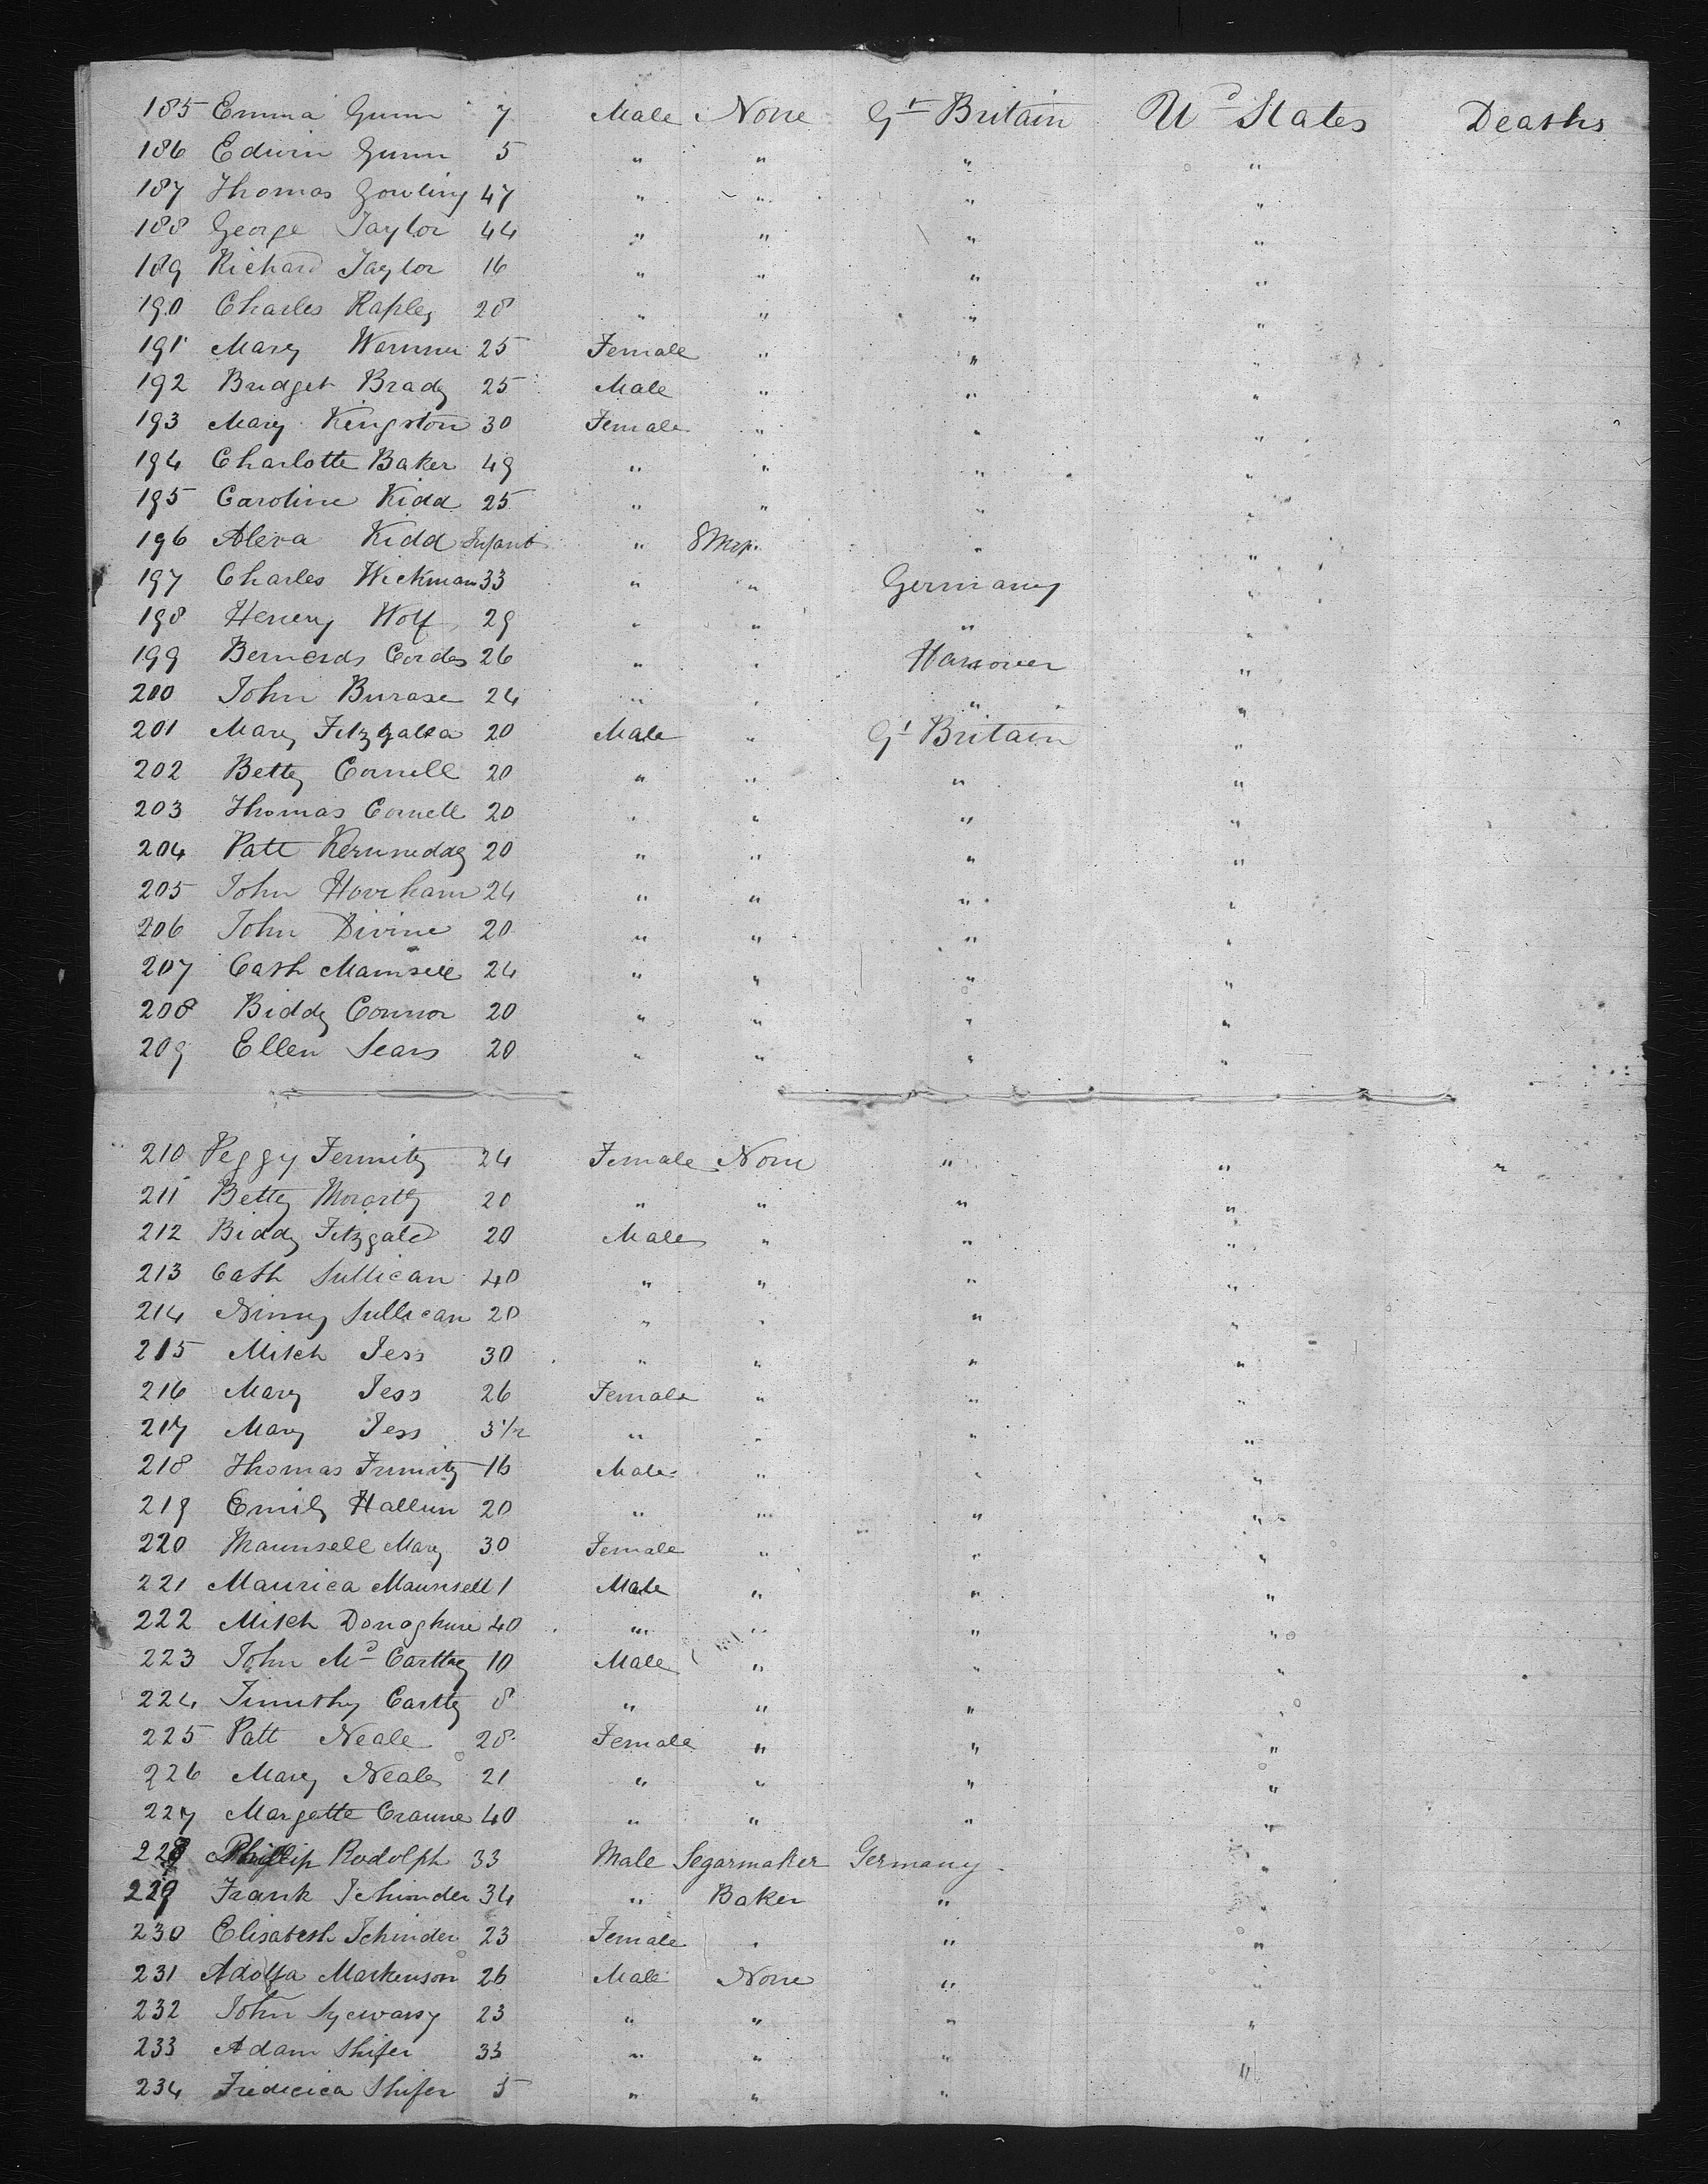 185 Emma Gunn 7 Male None Gt Britain Ud States Deaths
186 Edwin Gunn 5 " " " "
187 Thomas Gowling 47 " " " "
188 George Taylor 44 " " " "
189 Richard Taylor 16 " " " "
190 Charles Rapley 28 " " " "
191 Mary 25 Female " " "
192 Bridget Brady 25 Male " " "
193 Mary Kingston 30 Female " " "
194 Charlotte Baker 49 " " " "
195 Caroline Kidd 25 " " " "
196 Kidd Infant " 8 " "
197 Charles Wickman 33 " " Germany "
198 Henery Wolf 29 " " " "
199 Cordes 26 " " Hanover "
200 John Burase 24 " " " "
201 Mary 20 Male " Gt Britain "
202 Betty Cornell 20 " " " "
203 Thomas Cornell 20 " " " "
204 Patt 20 " " " "
205 John 24 " " " "
206 John Divine 20 " " " "
207 Cath 24 " " " "
208 Biddy Connor 20 " " " "
209 Ellen Sears 20 " " " "
210 Peggy 24 Female None " " "
211 Betty Moriarty 20 " " " "
212 Biddy Fitzgald 20 Male " " "
213 Cath Sullican 40 " " " "
214 Sullican 20 " " " "
215 Mitch Jess 30 " " " "
216 Mary Jess 26 Female " " "
217 Mary Jess 3 1/2 " " " "
218 Thomas 16 Male " " "
219 Emily Hallun 20 " " " "
220 Maunsell Mary 30 Female " " "
221 Maurica Maunsell 1 Male " " "
222 Mitch Donoghue 40 " " " "
223 John Mc Cartty 10 Male " " "
224 Timothy Cartty 8 " " " "
225 Patt Neale 28 Female " " "
226 Mary Neale 21 " " " "
227 Margette 40 " " " "
228 Phillip Rodolph 33 Male Segarmaker Germany "
229 Frank Schinder 34 " Baker " "
230 Elisabeth Schinder 23 Female " " "
231 Adolfa Markenson 26 Male None " "
232 John 23 " " " "
233 Adam Shifer 33 " " " "
234 Fredicica Shifer 5 " " " "